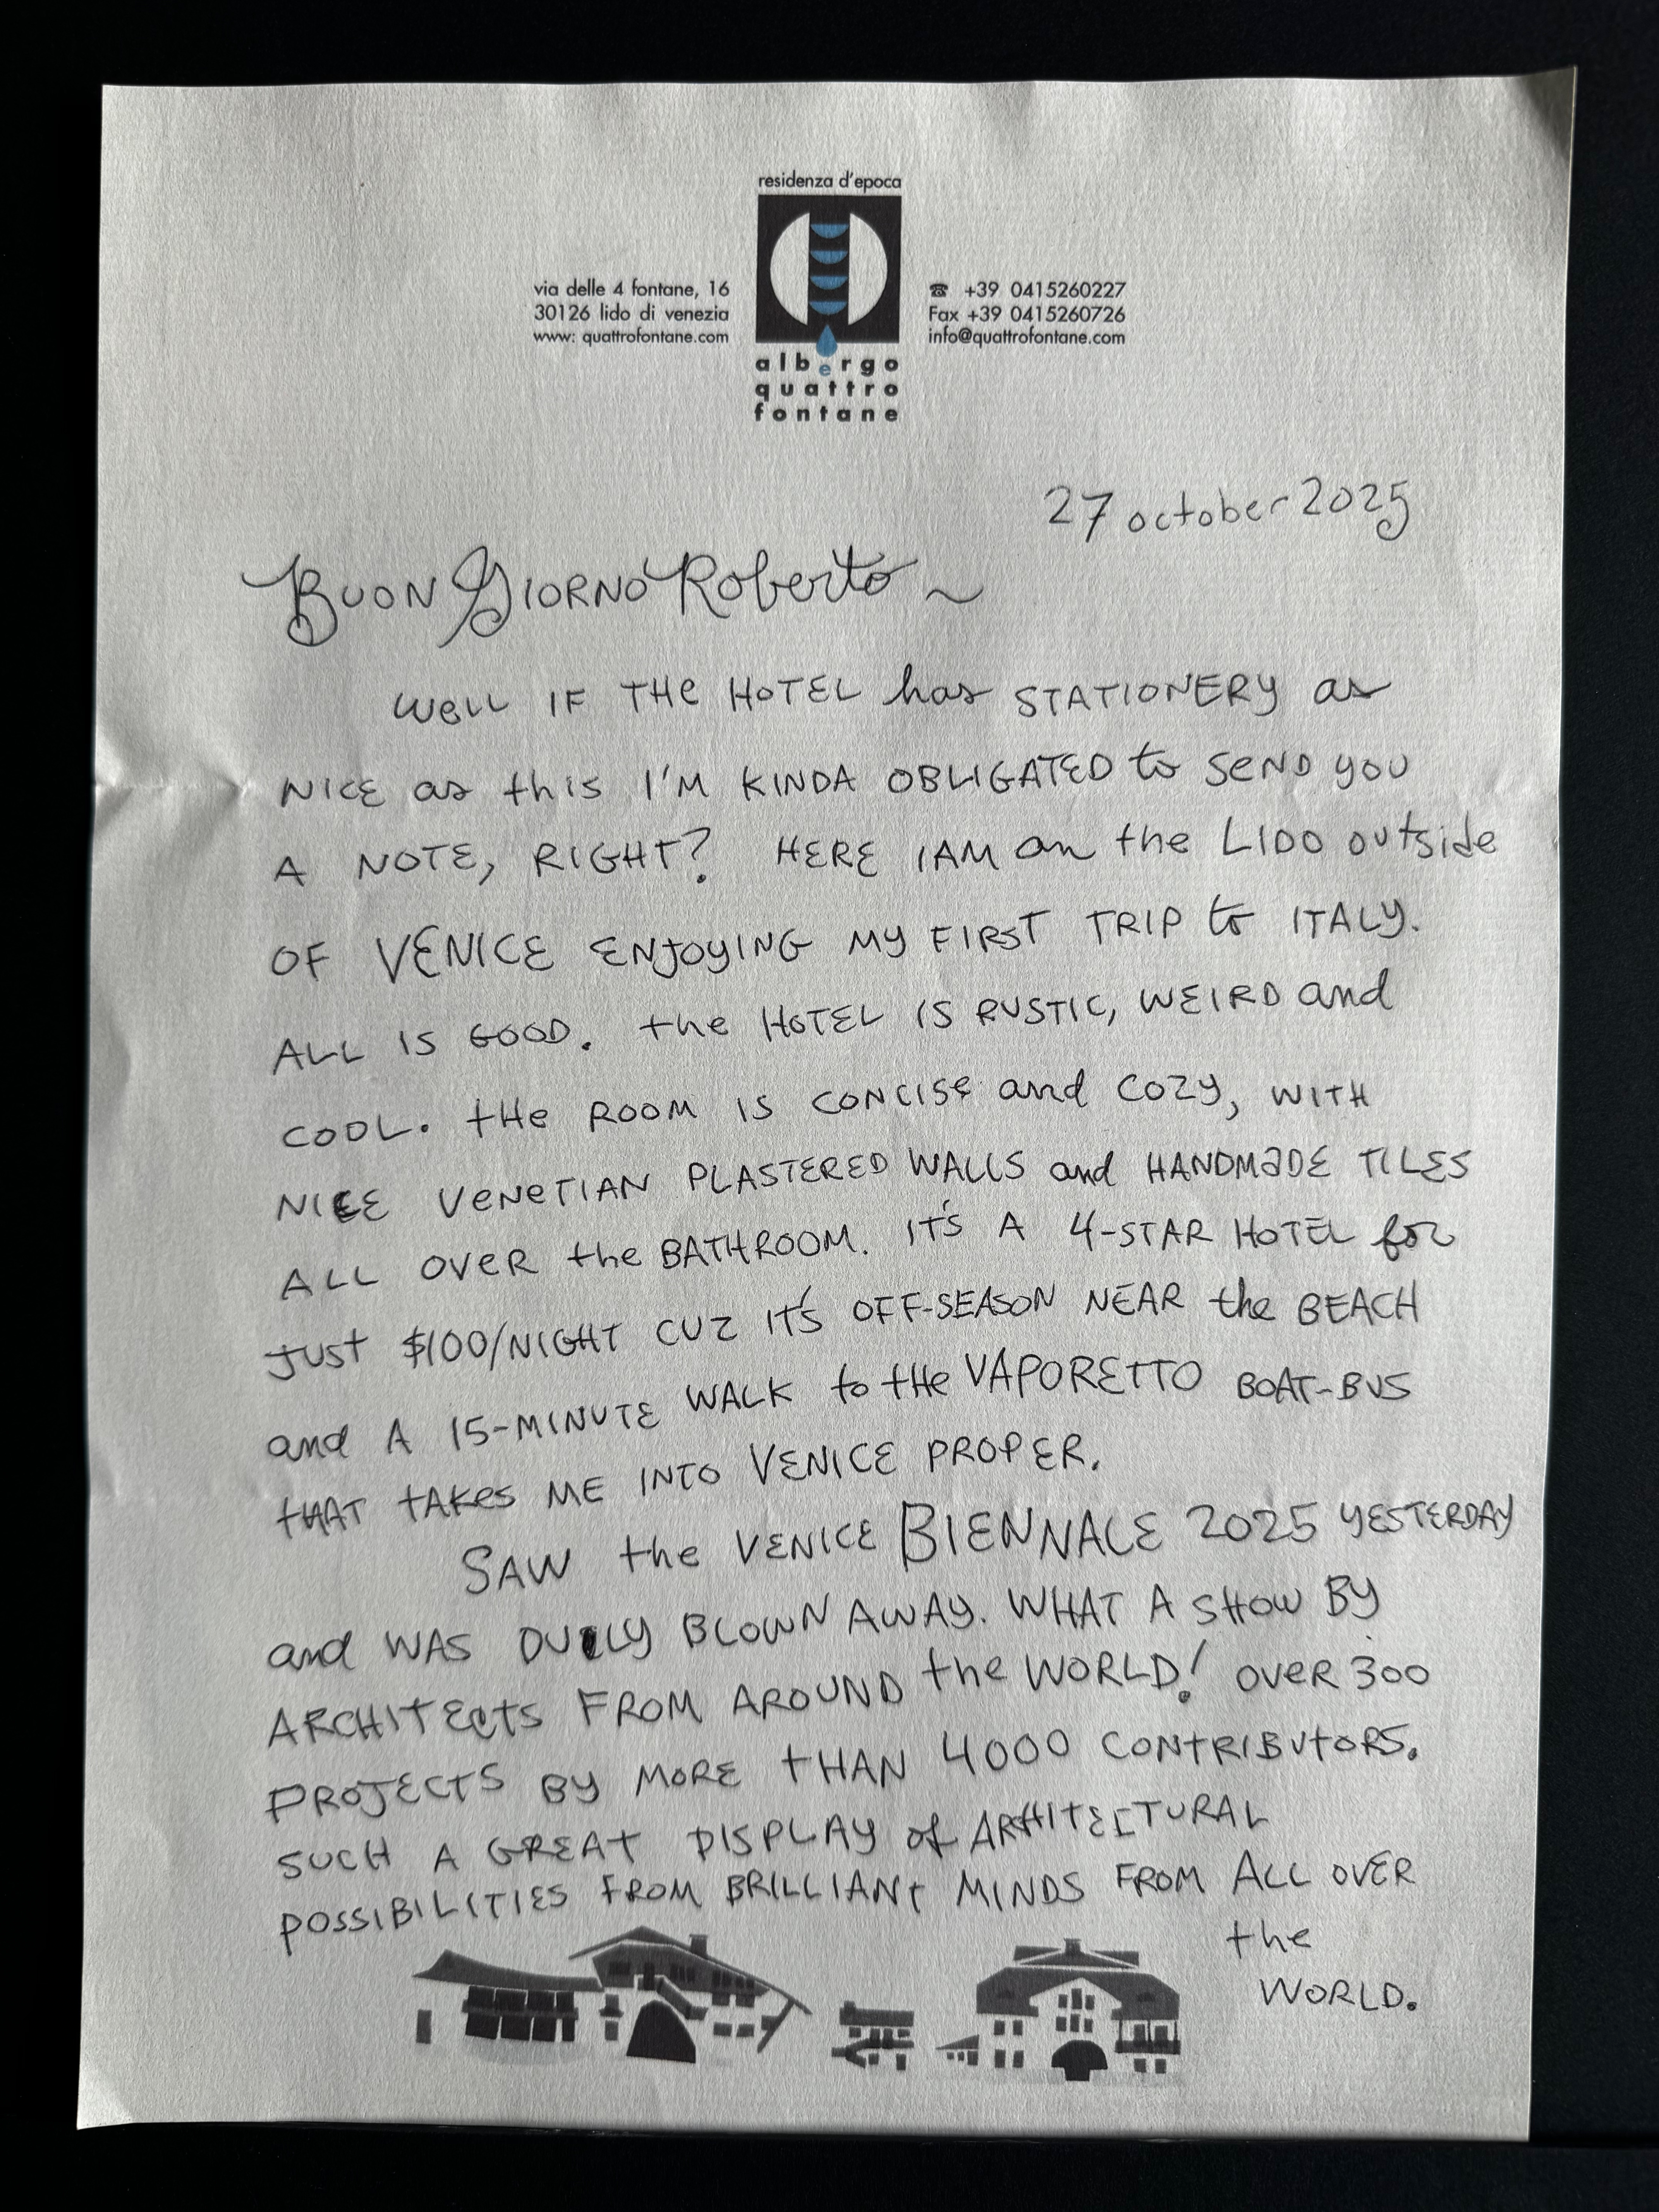 residenza d'epoca
via delle 4 fontane, 16
30126 lido di venezia
www: quattrofontane.com
☎ +39 0415260227
Fax +39 0415260726
info@quattrofontane.com
albergo
quattro
fontane
27 october 2025
BUON GIORNO Roberto ~
WELL IF THE HOTEL has STATIONERY as
NICE as this I'M KINDA OBLIGATED to SEND YOU
A NOTE, RIGHT? HERE I AM on the LIDO outside
OF VENICE ENJOYING MY FIRST TRIP to ITALY.
ALL IS GOOD. the HOTEL IS RUSTIC, WEIRD and
COOL. tHe ROOM IS CONCISE and COZY, WITH
NICE VENETIAN PLASTERED WALLS and HANDMADE TILES
ALL OVER the BATHROOM. IT'S A 4-STAR HOTEL for
JUST $100/NIGHT CUZ IT'S OFF-SEASON NEAR the BEACH
and A 15-MINUTE WALK to tHe VAPORETTO BOAT-BUS
tHAT tAKES ME INTO VENICE PROPER.
SAW the VENICE BIENNALE 2025 YESTERDAY
and WAS DULY BLOWN AWAY. WHAT A SHOW BY
ARCHITECTS FROM AROUND the WORLD! OVER 300
PROJECTS BY MORE tHAN 4000 CONTRIBUTORS.
SUCH A GREAT DISPLAY of ARHITECTURAL
POSSIBILITIES FROM BRILLIANT MINDS FROM ALL OVER
the
WORLD.